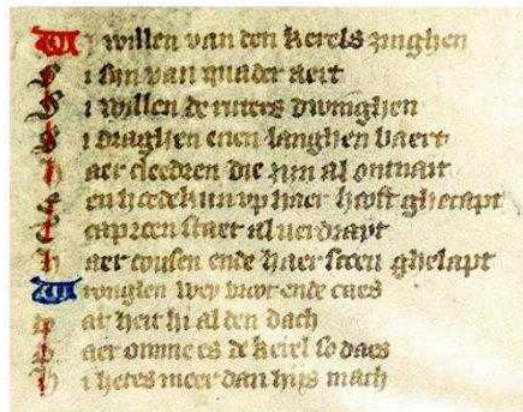 Wi willen van den kerels zinghen
Si sijn van quader aert
Si willen de ruters dwinghen
Si draghen enen langhen baert
Haer cleedren die zijn al ontnait
Een hoedekijn up haer hooft ghecapt
Tcaproen staet al verdrayt
Haer cousen ende haer scoen ghelapt
Wronglen wey broot ende caes
Dat heit hi al den dach
Daer omme es de kerel so daes
Hi hetes meer dan hijs mach